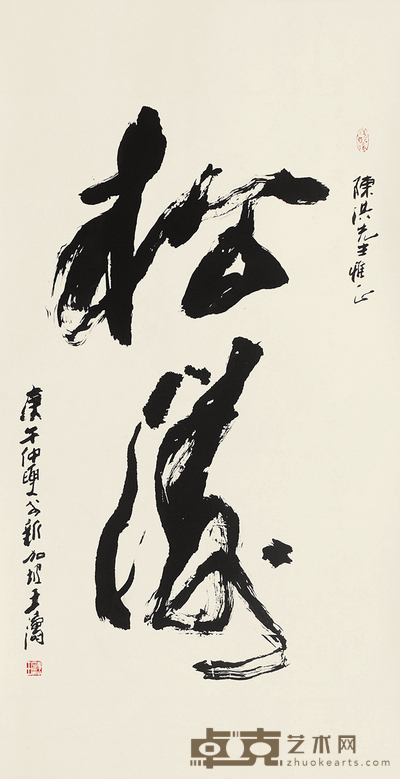 陳洪先生雅正
松濤
庚午仲夏於新加坡王濤
卓克艺术网
zhuokearts.com